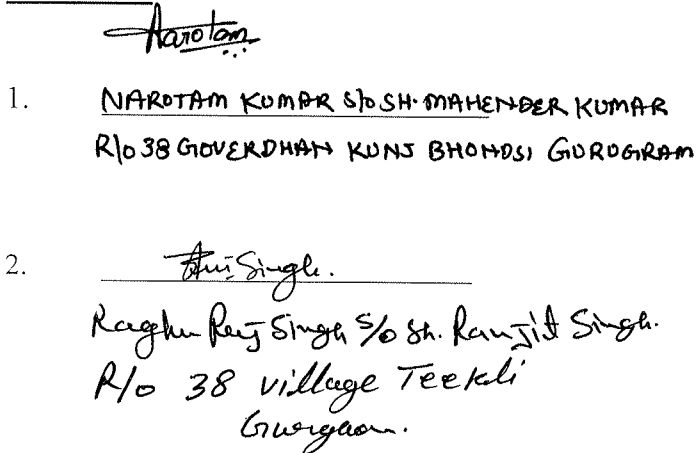 Narotam
1. NAROTAM KUMAR S/o SH. MAHENDER KUMAR
R/o 38 GOVERDHAN KUNJ BHONDSI GURUGRAM
2. Singh.
Raghu Raj Singh S/o Sh. Ranjit Singh.
R/o 38 village Teekli
Gurgaon.